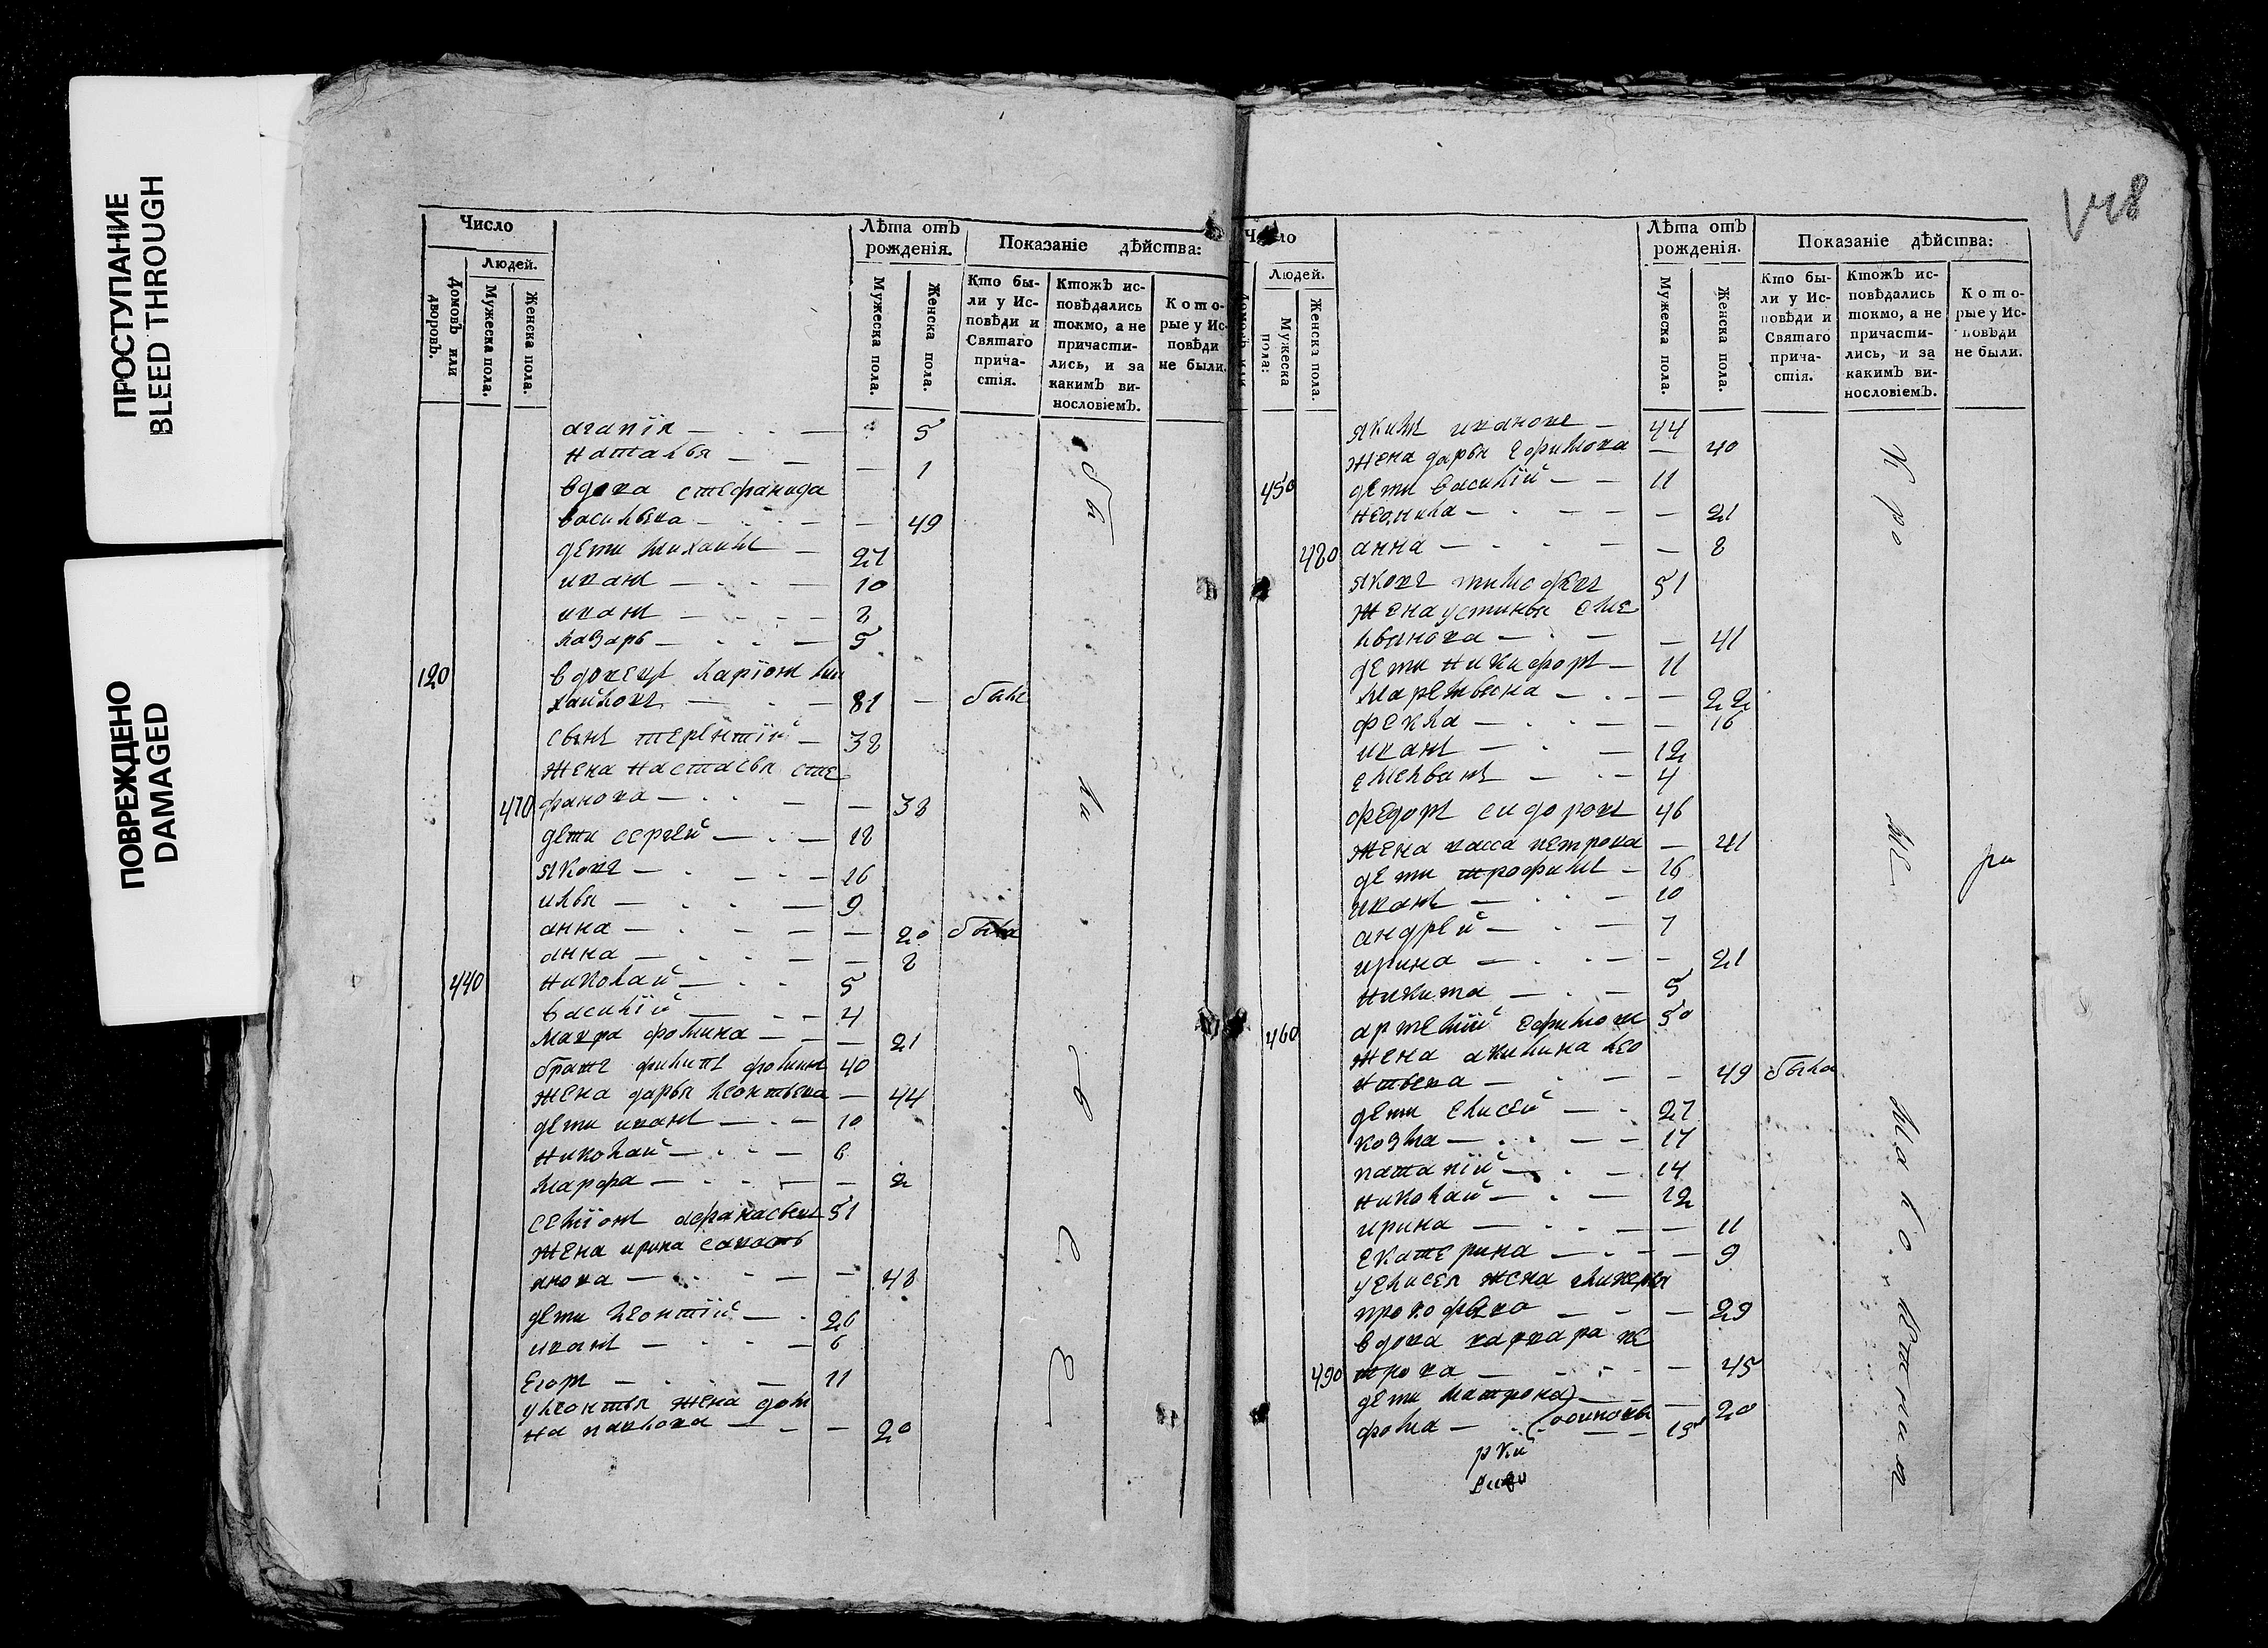 ПРОСТУПАНИЕ
BLEED THROUGH
ПОВРЕЖДЕНО
DAMAGED
Число
Людей.
Домовъ или дворовъ.
Мужеска пола.
Женска пола.
Лѣта отъ рожденія.
Мужеска пола.
Женска пола.
Показаніе дѣйства:
Кто были у Исповѣди и Святаго причастія.
Ктожъ исповѣдались токмо, а не причастились, и за какимъ винословіемъ.
Которые у Исповѣди не были.
агапія — 5
наталья — 1
вдова стефанида
васильева — — 49
дети михаилъ — 27
иванъ — 10
иванъ — 8
лазарь — 5
120 вдовецъ ларіонъ ми
хайловъ — 81 — былъ
сынъ терентій — 38
жена настасья сте
470 фанова — — 38
дети сергей — 18
яковъ — 16
илья — 9
анна — — 20 была
анна — — 8
440 николай — 5
василій — 4
мавра фомина — — 21
братъ филипъ фоминъ 40
жена дарья леонтьева — 44
дети иванъ — 10
николай — 6
марфа — — 2
семіонъ афанасьевъ 51
жена ирина савасть
янова — — 48
дети леонтій — 26
иванъ — 6
егоръ — 11
улеонтья жена дом
на павлова — — 20
бы
ли
в
с
Число
Людей.
Мужеска пола:
Женска пола.
Лѣта отъ рожденія.
Мужеска пола.
Женска пола.
Показаніе дѣйства:
Кто были у Исповѣди и Святаго причастія.
Ктожъ исповѣдались токмо, а не причастились, и за какимъ винословіемъ.
Которые у Исповѣди не были.
якимъ ивановъ — 44
жена дарья ефимова — 40
450 дети василій — 11
неонила — — 21
480 анна — — 8
яковъ тимофеевъ 51
жена устинья еме
льянова — — 41
дети никифоръ — 11
маремьяна — — 22
фекла — — 16
иванъ — 12
емельянъ — 4
федоръ сидоровъ 46
жена васса петрова — 41
дети трофимъ — 16
иванъ — 10
андрей — 7
ирина — — 21
никита — 5
460 артемій ефимовъ 50
жена акилина лео
нтьева — — 49 была
дети елисей — 27
козма — 17
потапій — 14
николай — 12
ирина — — 11
екатерина — — 9
уелисея жена гликерья
прокофьева — — 29
вдова варвара пе
490 трова — — 45
дети матрона — 20
фома — 19